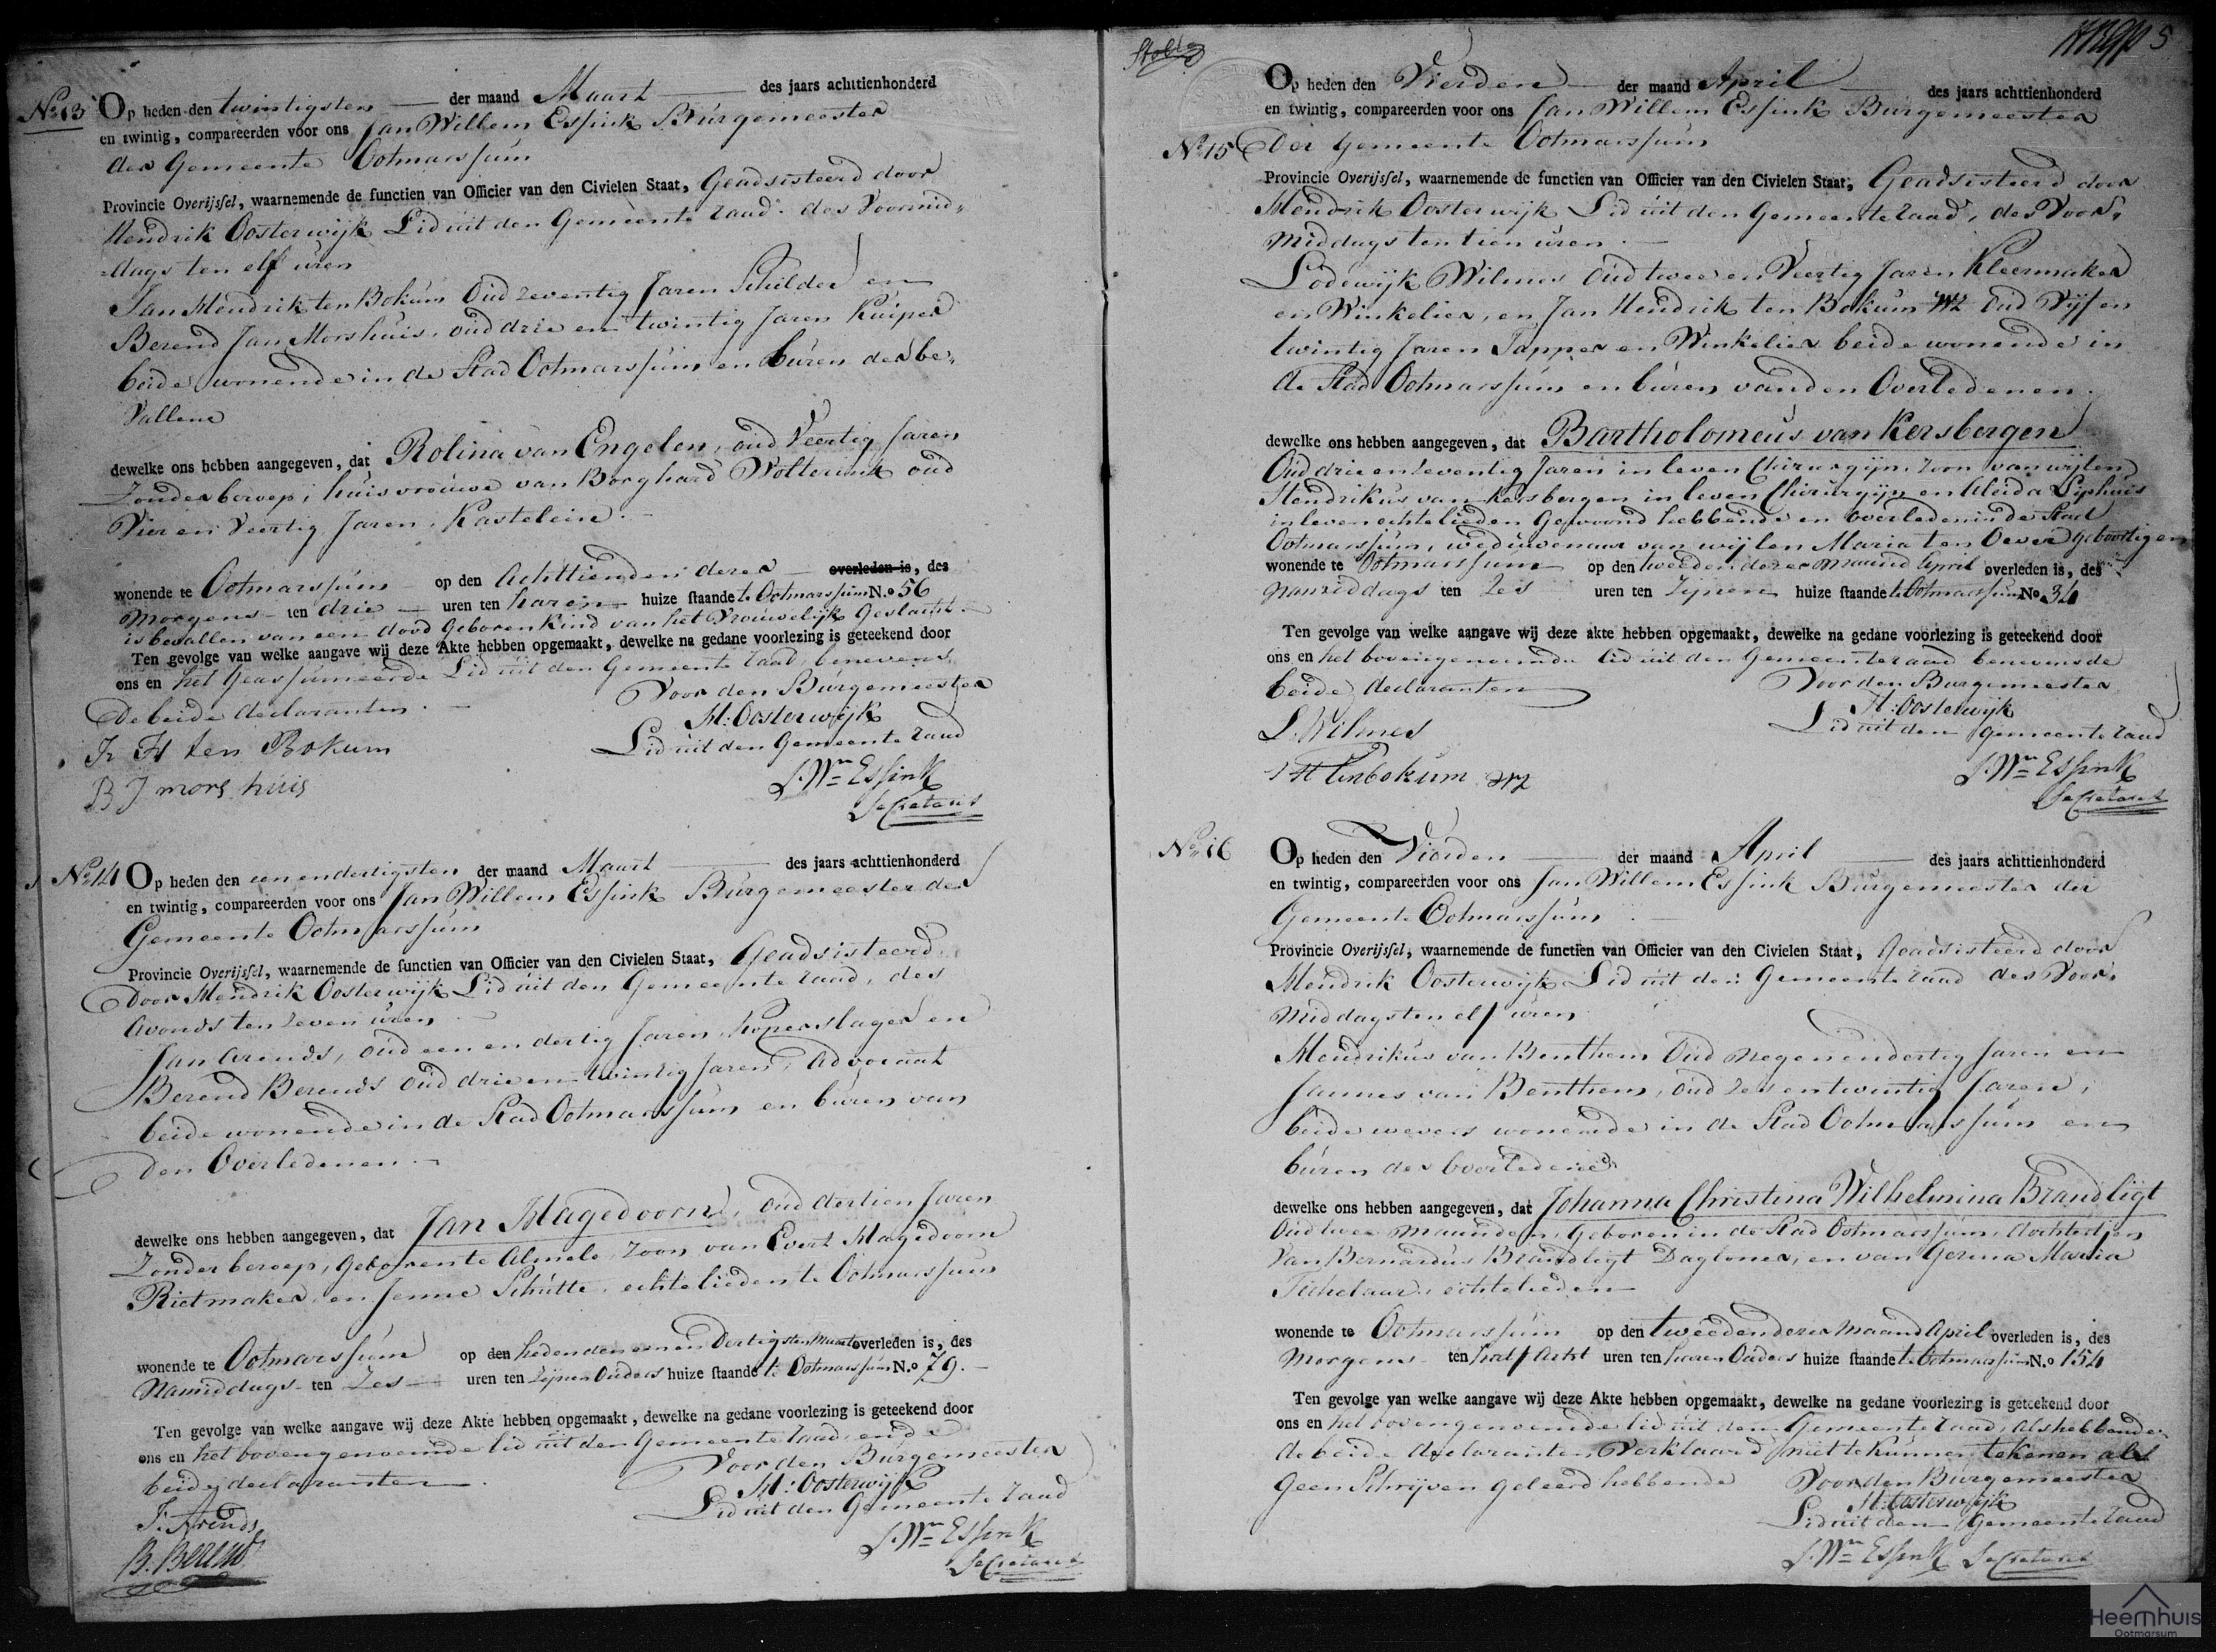 No. 13 Op heden den twintigsten der maand Maart des jaars achttienhonderd
en twintig, compareerden voor ons Jan Willem Essink Burgemeester
der Gemeente Ootmarssum
Provincie Overijssel, waarnemende de functien van Officier van den Civielen Staat, Geadsisteerd door
Hendrik Oosterwijk Lid uit den Gemeente raad. des Voormid-
dags ten elf uren
Jan Hendrik ten Bokum Oud zeventig Jaren Schilder en
Berend Jan Morshuis, oud drie en twintig Jaren Kuiper
beide wonende in de Stad Ootmarssum en buren der be-
vallene
dewelke ons hebben aangegeven, dat Rolina van Engelen, oud Veertig Jaren
Zonder beroep, huisvrouwe van Borghard Wolterink oud
Vier en Veertig Jaren, Kastelein.
wonende te Ootmarssum op den Achttienden dezer overleden is, des
morgens ten drie uren ten haren huize staande te Ootmarssum N.o 56
is bevallen van een dood geboren Kind van het Vrouwelijk Geslacht.
Ten gevolge van welke aangave wij deze Akte hebben opgemaakt, dewelke na gedane voorlezing is geteekend door
ons en het Geassumeerde Lid uit den Gemeente raad, benevens
de beide declaranten. Voor den Burgemeester
H: Oosterwijk
Lid uit den Gemeente raad
J H ten Bokum
B J mors huis
J. Wm Essink
Secretaris
No. 14 Op heden den een en dertigsten der maand Maart des jaars achttienhonderd
en twintig, compareerden voor ons Jan Willem Essink Burgemeester der
Gemeente Ootmarssum
Provincie Overijssel, waarnemende de functien van Officier van den Civielen Staat, Geadsisteerd
door Hendrik Oosterwijk Lid uit den Gemeente raad, des
Avonds ten zeven uren
Jan Arends, oud een en dertig Jaren, koperslager en
Berend Berends oud drie en twintig Jaren, Advocaat
beide wonende in de Stad Ootmarssum en buren van
den Overledenen.
dewelke ons hebben aangegeven, dat Jan Hagedoorn, oud dertien Jaren
Zonder beroep, Geboren te Almelo, zoon van Evert Hagedoorn
Rietmaker, en Jenne Schutte, echtelieden te Ootmarssum
wonende te Ootmarssum op den heden den een en Dertigsten Maart overleden is, des
Namiddags ten Zes uren ten Zijner Ouders huize staande te Ootmarssum N.o 79.
Ten gevolge van welke aangave wij deze Akte hebben opgemaakt, dewelke na gedane voorlezing is geteekend door
ons en het bovengenoemde lid uit den Gemeente raad en de
beide declaranten. Voor den Burgemeester
H: Oosterwijk
Lid uit den Gemeente raad
J. Arends
B. Berends
J. Wm Essink
Secretaris
5
Op heden den Vierden der maand April des jaars achttienhonderd
en twintig, compareerden voor ons Jan Willem Essink Burgemeester
No. 15 der Gemeente Ootmarssum
Provincie Overijssel, waarnemende de functien van Officier van den Civielen Staat, Geadsisteerd door
Hendrik Oosterwijk Lid uit den Gemeente raad, des Voor-
middags ten tien uren.
Lodewijk Wilmes Oud twee en Veertig Jaren Kleermaker
en Winkelier, en Jan Hendrik ten Bokum Oud Vijf en
twintig Jaren Tapper en Winkelier beide wonende in
de Stad Ootmarssum en buren van den Overledenen.
dewelke ons hebben aangegeven, dat Bartholomeus van Kersbergen
Oud drie en zeventig Jaren in leven Chirurgijn, Zoon van wijlen
Hendrikus van Kersbergen in leven Chirurgijn en Aleida Liphuis
in leven echtelieden Gewoond hebbende en overleden in de Stad
Ootmarssum, weduwenaar van wijlen Maria ten Oever Geboortig en
wonende te Ootmarssum op den tweeden dezer maand April overleden is, des
namiddags ten Zes uren ten Zijnen huize staande te Ootmarssum N.o 34
Ten gevolge van welke aangave wij deze akte hebben opgemaakt, dewelke na gedane voorlezing is geteekend door
ons en het bovengenoemde lid uit den Gemeenteraad benevens de
beide declaranten Voor den Burgemeester
H: Oosterwijk
Lid uit den Gemeente raad
L. Wilmes
J H tenbokum
J. Wm Essink
Secretaris
No. 16 Op heden den Vierden der maand April des jaars achttienhonderd
en twintig, compareerden voor ons Jan Willem Essink Burgemeester der
Gemeente Ootmarssum
Provincie Overijssel, waarnemende de functien van Officier van den Civielen Staat, Geadsisteerd door
Hendrik Oosterwijk Lid uit den Gemeente raad des Voor-
middags ten elf uren
Hendrikus van Benthem Oud Negen en dertig Jaren en
Jannes van Benthem, oud zes en twintig Jaren,
beide wevers wonende in de Stad Ootmarssum en
buren der overledene
dewelke ons hebben aangegeven, dat Johanna Christina Wilhelmina Brandligt
Oud twee maanden, Geboren in de Stad Ootmarssum, dochtertjen
Van Bernardus Brandligt Dagloner, en van Gesina Maria
Tichelaar, echtelieden
wonende te Ootmarssum op den tweeden dezer maand April overleden is, des
Morgens ten half Acht uren ten haren Ouders huize staande te Ootmarssum N.o 154
Ten gevolge van welke aangave wij deze Akte hebben opgemaakt, dewelke na gedane voorlezing is geteekend door
ons en het bovengenoemde lid uit den Gemeente raad, als hebbende
de beide declaranten Verklaard niet te kunnen tekenen als
Geen Schrijven geleerd hebbende Voor den Burgemeester
H: Oosterwijk
Lid uit den Gemeente raad
J. Wm Essink Secretaris
Heemhuis
Ootmarsum